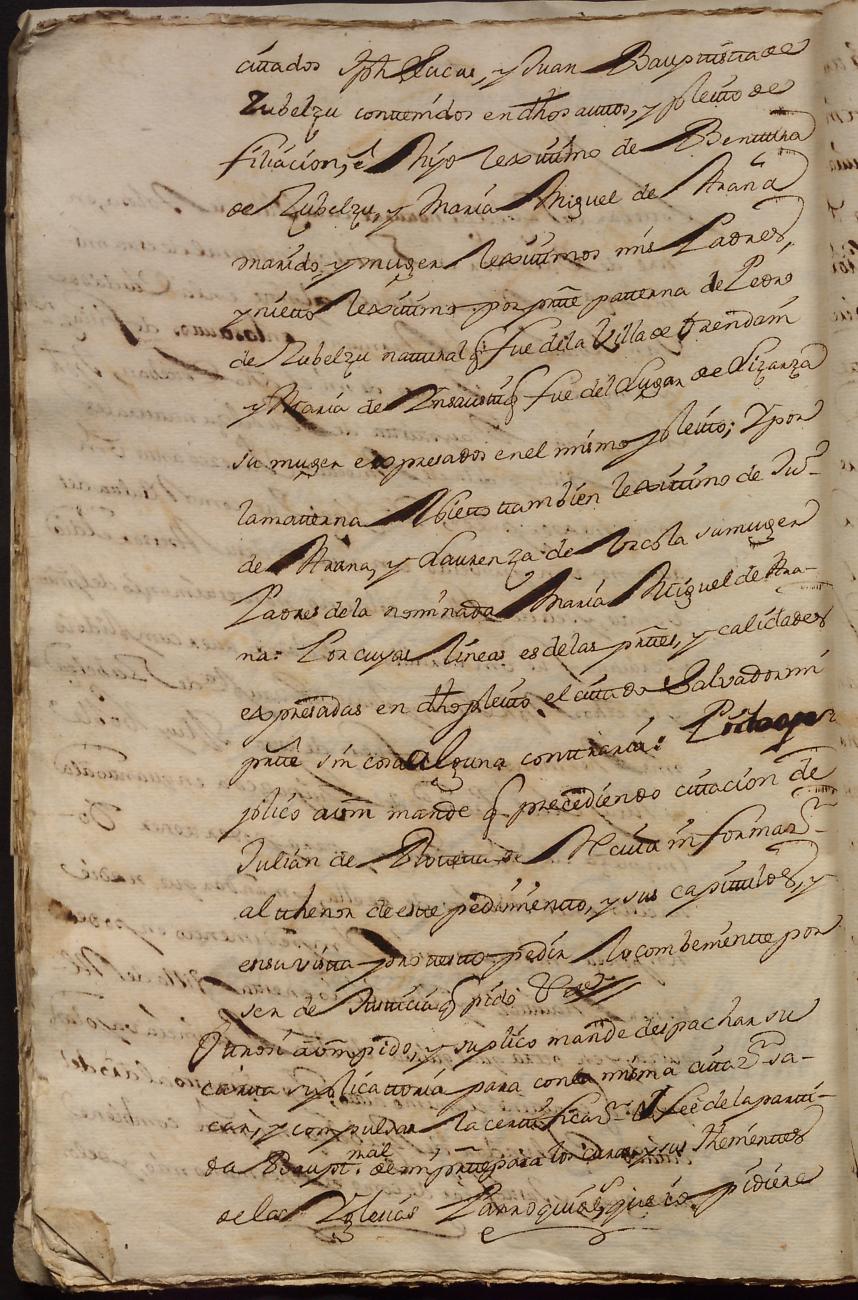 citados Jph Lucas, y Juan Bauptista de
Zubelzu contenidos en dhos autos, y pleito de
filiacion, é hijo lexitimo de Bentura
de Zubelzu, y Maria Miguel de Arana
marido, y muger lexitimos mis Padres,
y nietto lexitimo por partte patterna de Pedro
de Zubelzu natural q fue de la Villa de Orendain
y Maria de Insausti q fue del Lugar de Lizarza
su muger expresados en el mismo pleito; Y por
la matterna Nietto ttambien lexitimo de Jun
de Arana, y Laurenza de Urcola su muger
Padres de la nominada Maria Miguel de Ara-
na: Por cuyas lineas es de las prtes, y calidades
expresadas en dho pleito el citado Salvador mi
partte sin cosa alguna contraria: Pido y su
plico a Vm mande q precediendo citacion de
Julian de de Alcuta informazn
al thenor de este pedimentto, y sus capitulos, y
en su vista protesto pedir lo combeniente por
ser de Justticia q pido
Otrosi a Vm pido, y suplico mande despachar su
cartta suplicattoria para con la misma citazn sa-
car, y compulsar la certtificazn ó fee de la partti-
da Baupt.mal de mi partte para los curas, y sus thenienttes
de las Yglesias Parroquiales, que co pidiere